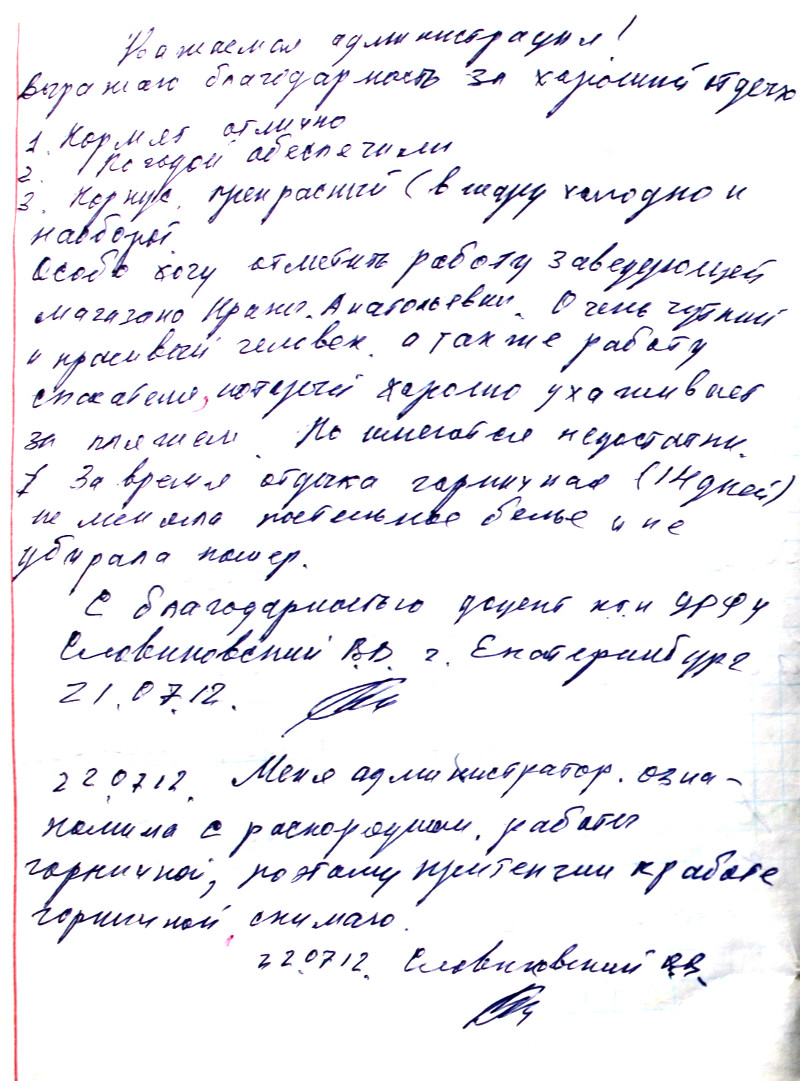 Уважаемая администрация!
Выражаю благодарность за хороший отдых
1. Кормят отлично
2. Погодой обеспечили
3. Корпус прекрасный (в жару холодно и
наоборот.
Особо хочу отметить работу заведующей
магазано Анатольевны. Очень чуткий
и красивый человек, а также работу
спасателя, который хорошо ухаживает
за пляжем. Но имеются недостатки.
1 За время отдыха горничная (14 дней)
не меняла постельное белье и не
убирала номер.
С благодарностью доцент ктн УРФУ
Словиковский В.В. г. Екатеринбург
21.07.12.
22.07.12. Меня администратор озна-
комила с распорядком работы
горничной, поэтому притензии к работе
горничной снимаю.
22.07.12. Словиковский В.В.